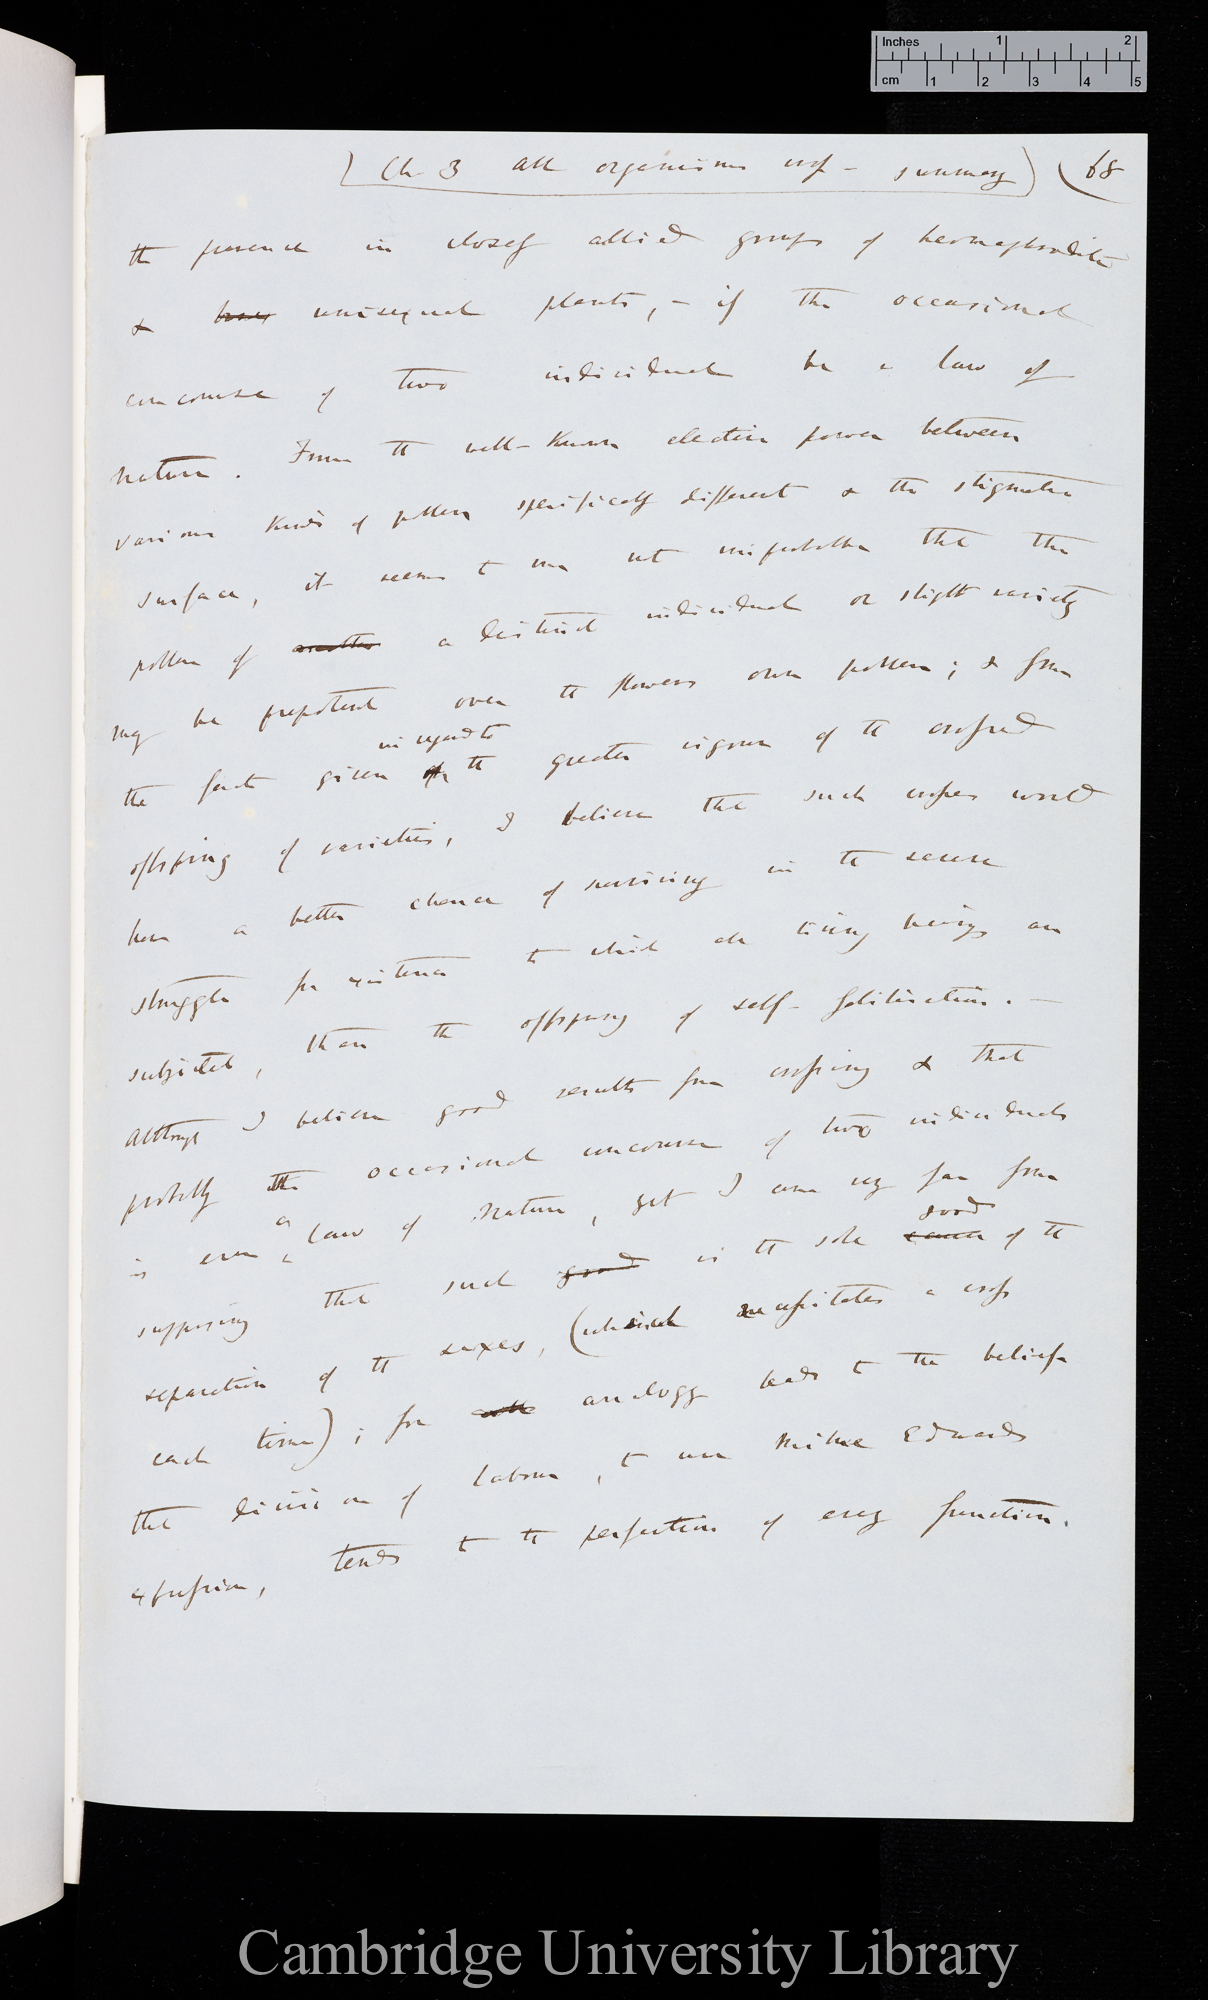 Inches 1 2
cm 1 2 3 4 5
(Ch 3 All organisms cross – summary) (68
the presence in closely allied groups of hermaphrodite
& unisexual plants, – if the occasional
concourse of two individuals be a law of
nature. From the well-known elective power between
various kinds of pollen specifically different & the stigmatic
surface, it seems to me not improbable that the
pollen of a distinct individual or slight variety
may be prepotent over the flowers own pollen; & from
in regard to
the facts given the greater vigour of the crossed
offspring of varieties, I believe that such crosses would
have a better chance of surviving in the severe
struggle for existence to which all living beings are
subjected, than the offspring of self-fertilisation. –
Although I believe good results from crossing & that
probably the occasional concourse of two individuals
is even a law of Nature, yet I am very far from
good
supposing that such good is the sole cause of the
separation of the sexes, (which necessitates a cross
each time); for analogy leads to the belief
that division of labour, to use Milne Edwards
expression, tends to the perfection of every function.
Cambridge University Library